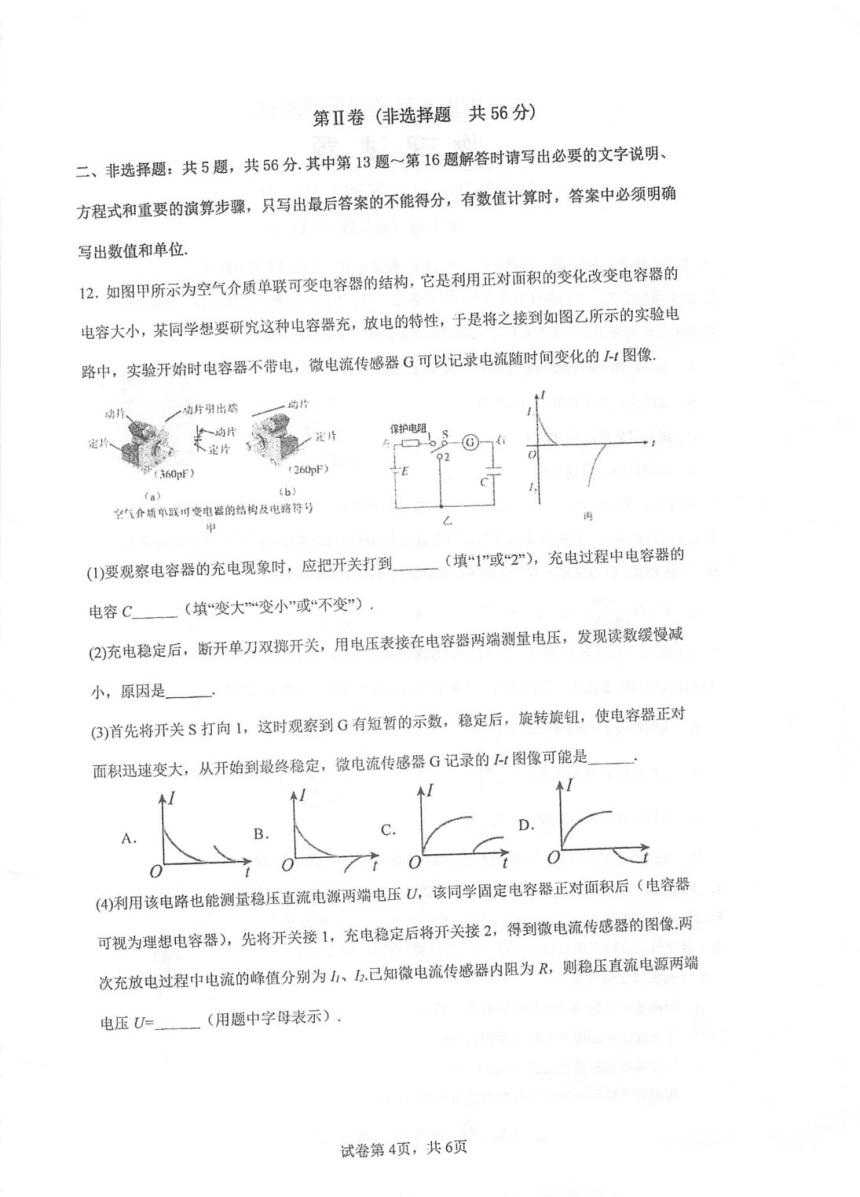 第Ⅱ卷 (非选择题 共 56 分)
二、非选择题：共 5 题，共 56 分.其中第 13 题～第 16 题解答时请写出必要的文字说明、
方程式和重要的演算步骤，只写出最后答案的不能得分，有数值计算时，答案中必须明确
写出数值和单位.
12．如图甲所示为空气介质单联可变电容器的结构，它是利用正对面积的变化改变电容器的
电容大小，某同学想要研究这种电容器充，放电的特性，于是将之接到如图乙所示的实验电
路中，实验开始时电容器不带电，微电流传感器 G 可以记录电流随时间变化的 I-t 图像.
动片 动片引出端 动片
定片 动片 定片 定片
(360pF) (260pF)
(a) (b)
空气介质单联可变电容器的结构及电路符号
甲
保护电阻 1 S
左 G 右
2
E C
乙
I
I₁
O t
I₂
丙
(1)要观察电容器的充电现象时，应把开关打到______（填“1”或“2”），充电过程中电容器的
电容 C______（填“变大”“变小”或“不变”）.
(2)充电稳定后，断开单刀双掷开关，用电压表接在电容器两端测量电压，发现读数缓慢减
小，原因是______.
(3)首先将开关 S 打向 1，这时观察到 G 有短暂的示数，稳定后，旋转旋钮，使电容器正对
面积迅速变大，从开始到最终稳定，微电流传感器 G 记录的 I-t 图像可能是______.
A. I O t B. I O t C. I O t D. I O t
(4)利用该电路也能测量稳压直流电源两端电压 U，该同学固定电容器正对面积后（电容器
可视为理想电容器），先将开关接 1，充电稳定后将开关接 2，得到微电流传感器的图像.两
次充放电过程中电流的峰值分别为 I₁、I₂.已知微电流传感器内阻为 R，则稳压直流电源两端
电压 U=______（用题中字母表示）.
试卷第 4页，共 6页